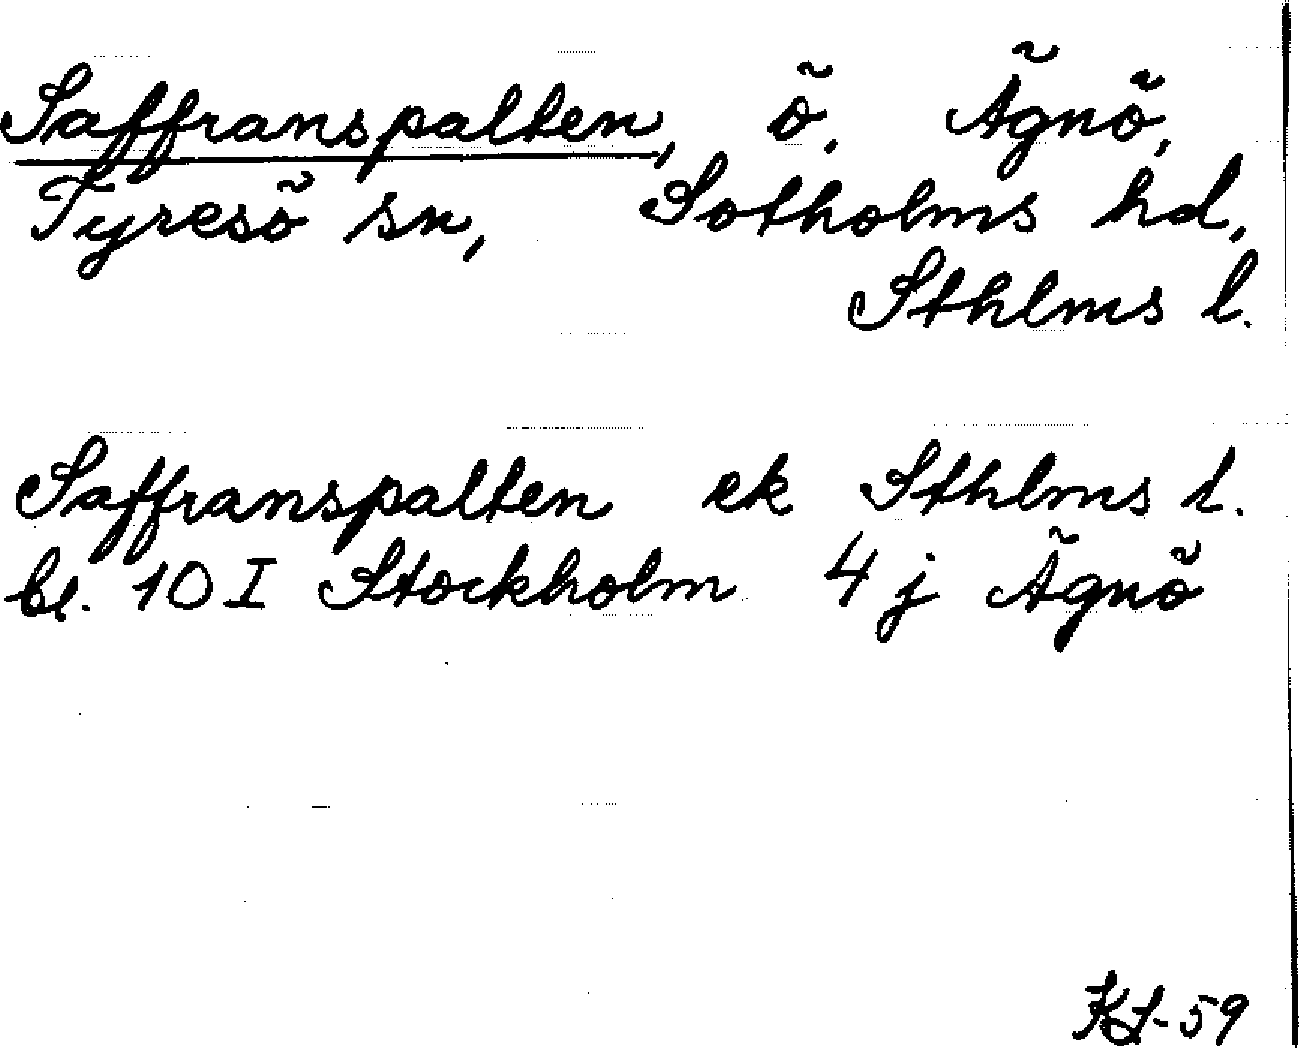 Saffranspalten, ö. Ägnö,
Tyresö sn, Sotholms hd,
Sthlms l.
Saffranspalten ek Sthlms l.
bl. 10 I Stockholm 4 j Ägnö
KL-59